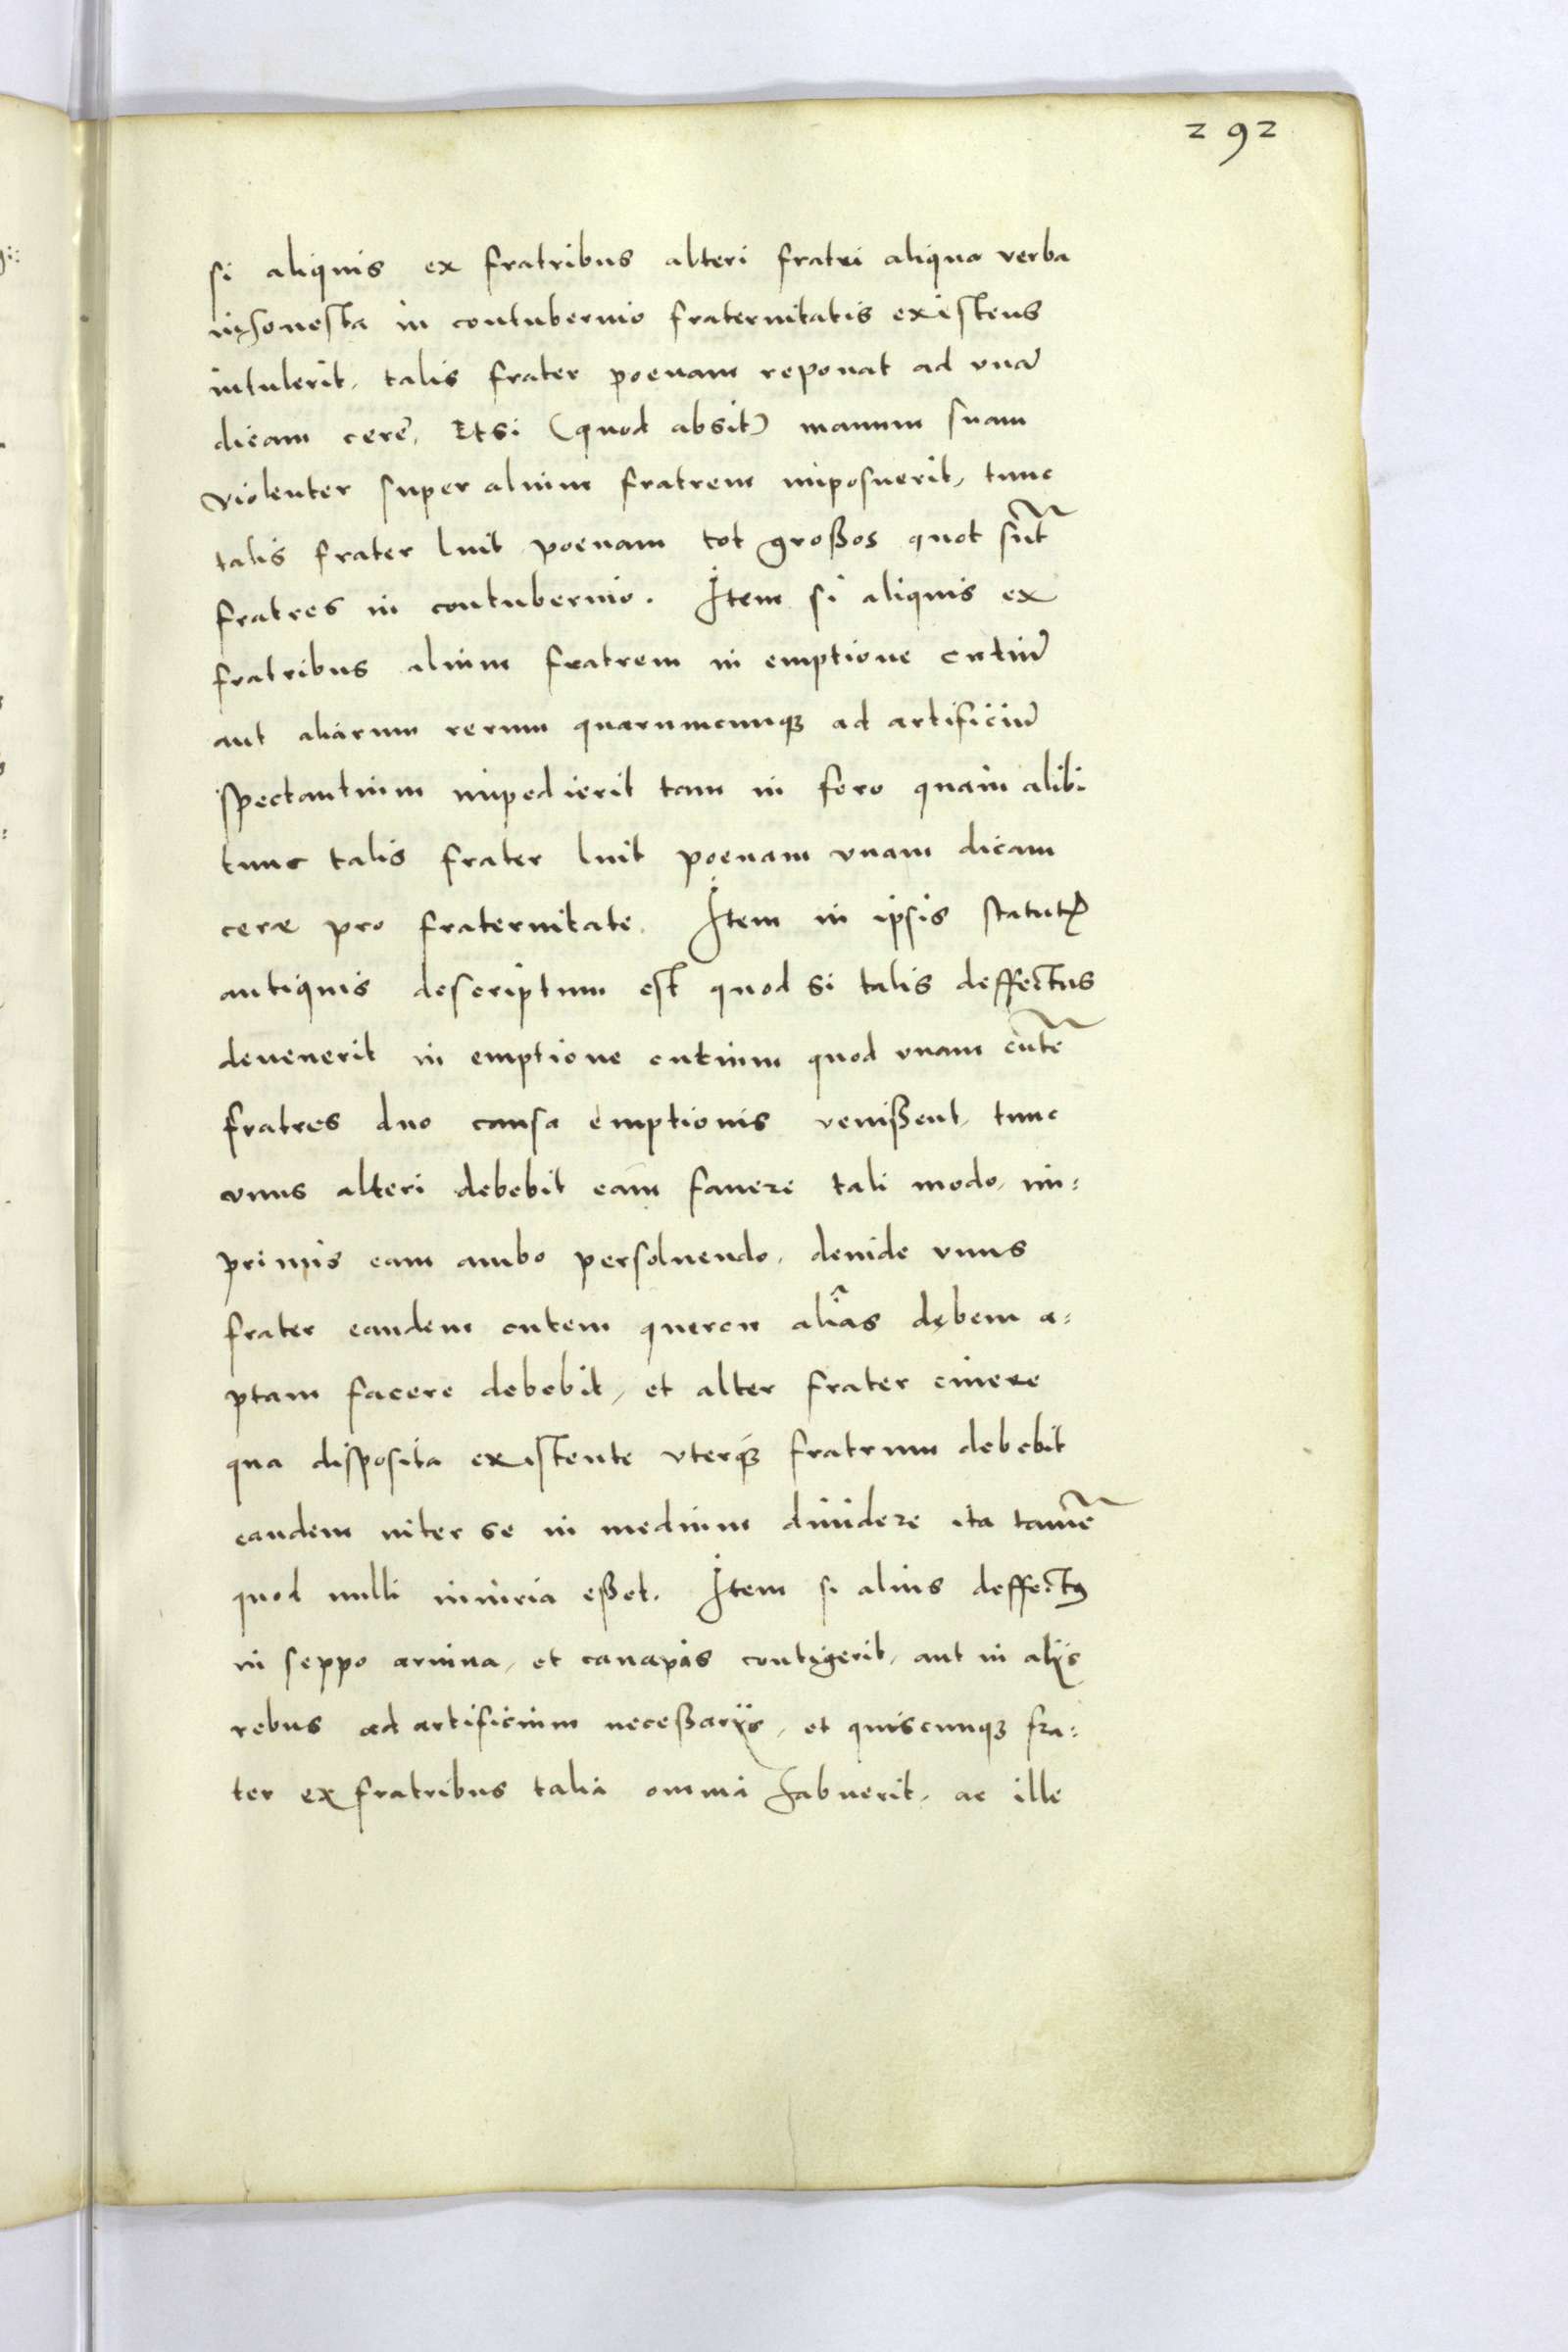 292
si aliquis ex fratribus alteri fratri aliqua verba
inhonesta in contubernio fraternitatis existens
intulerit, talis frater poenam reponat ad vnā
dicam cerę, Et si (quod absit) manum suam
violenter super alium fratrem imposuerit, tunc
talis frater luit poenam tot großos quot sūt
fratres in contubernio. Item si aliquis ex
fratribus alium fratrem in emptione cutiū
aut aliarum rerum quarumcunqꝫ ad artificiū
spectantium impedierit tam in foro quam alibi
tunc talis frater luit poenam vnam dicam
ceræ pro fraternitate. Item in ipsis statutꝭ
antiquis descriptum est quod si talis deffectus
deuenerit in emptione cutium quod vnam cutē
fratres duo causa emptionis venißent, tunc
vnus alteri debebit eam fauere tali modo, im:
primis eam ambo persoluendo, deinde vnus
frater eandem cutem quercu alias dębem a:
ptam facere debebit, et alter frater cinere
qua disposita existente vterqꝫ fratrum debebit
eandem inter se in medium diuidere ita tamē
quod nulli iniuria eßet. Item si alius deffectꝰ
in seppo aruina, et canapis contigerit, aut in alijs
rebus ad artificium neceßarijs, et quiscunqꝫ fra:
ter ex fratribus talia omnia habuerit, ac ille